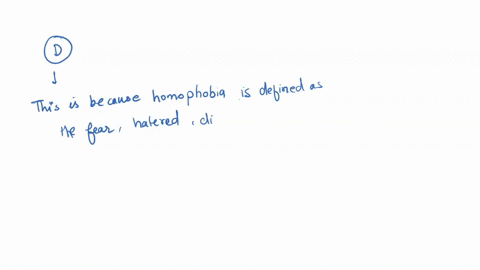 D
This is because homophobia is defined as
the fear, hatered, di